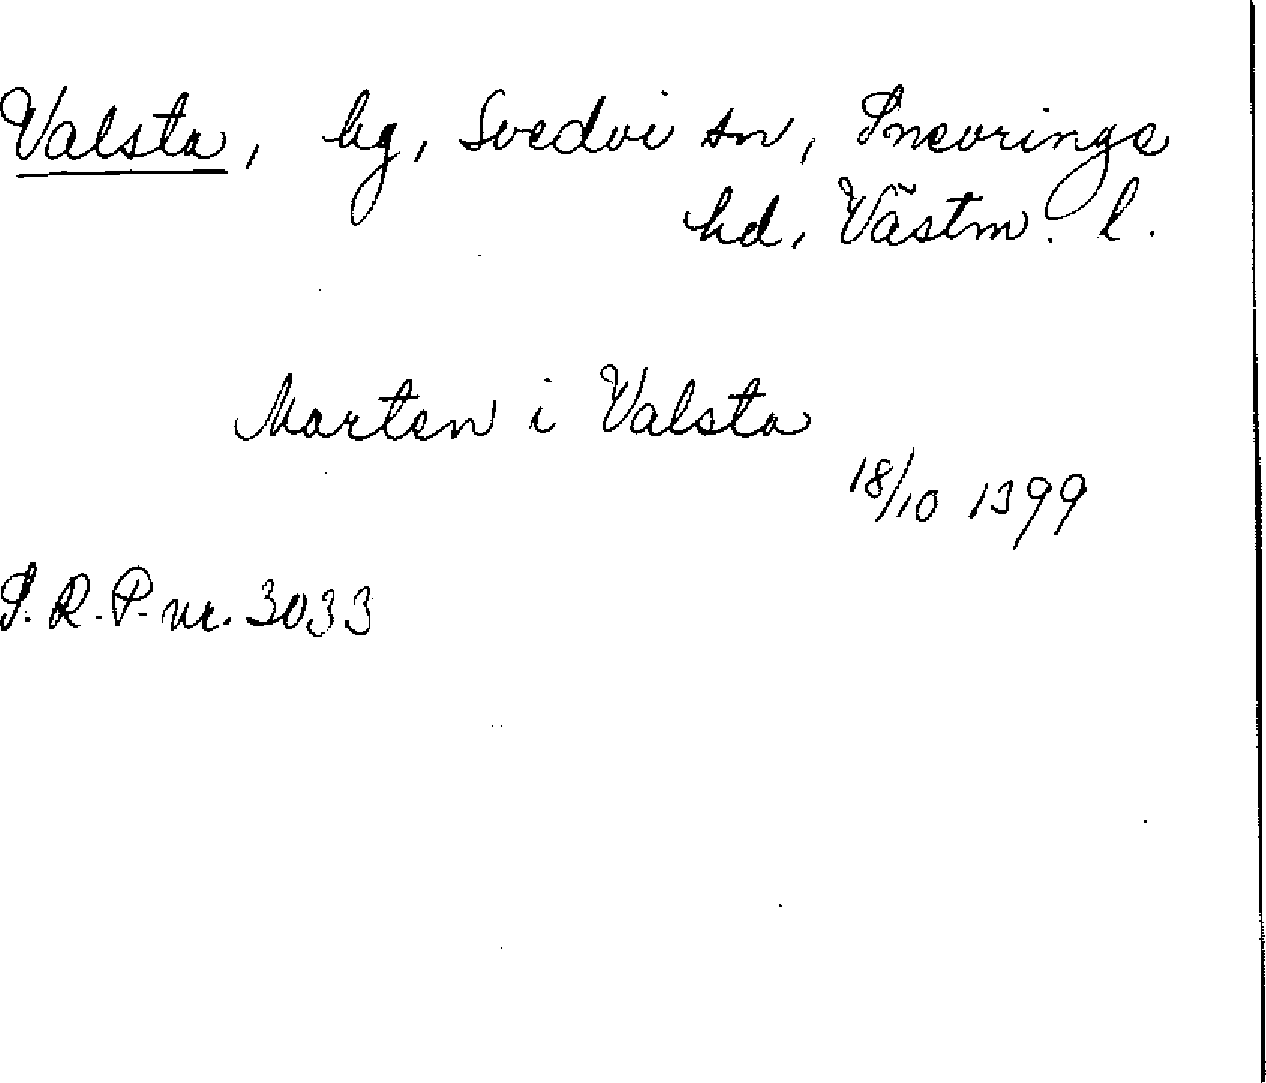 Valsta, by, Svedvi sn, Snevringe
hd, Västm. l.
Marten i Valsta
18/10 1399
S.R.P. nr. 3033